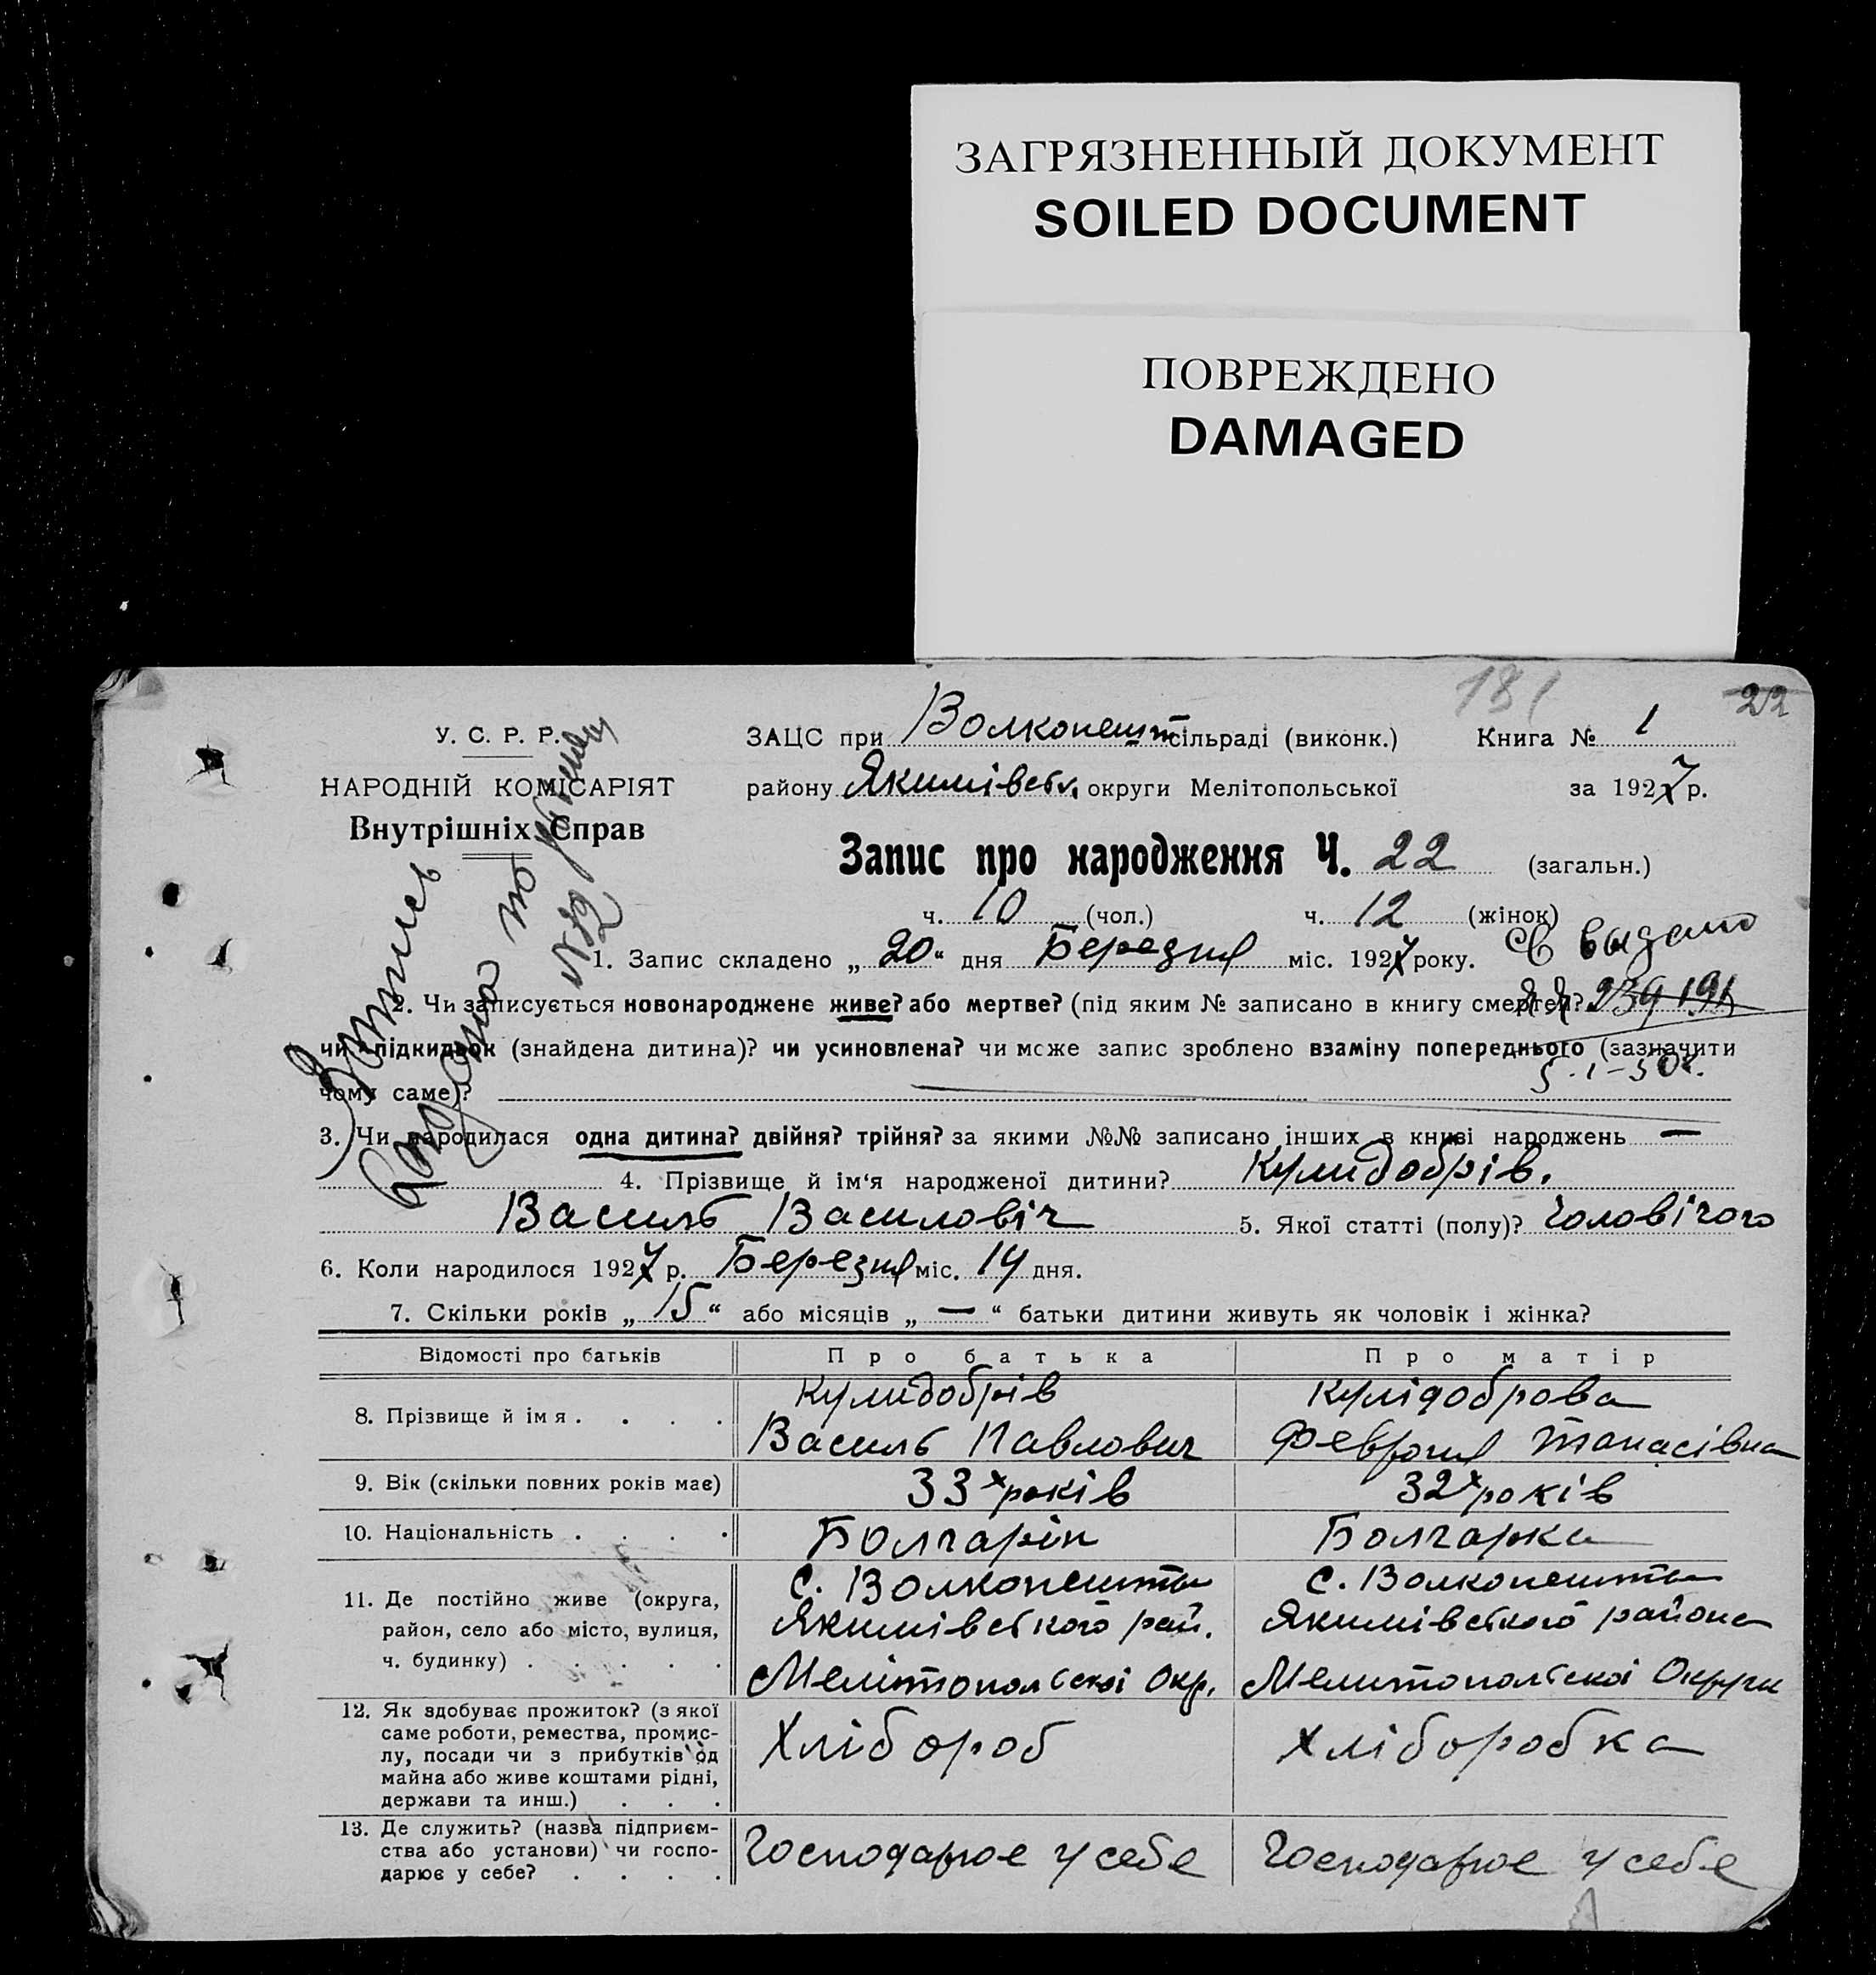 ЗАГРЯЗНЕННЫЙ ДОКУМЕНТ
SOILED DOCUMENT
ПОВРЕЖДЕНО
DAMAGED
181
22
У. С. Р. Р.
НАРОДНІЙ КОМІСАРІЯТ
Внутрішніх Справ
ЗАЦС при Волконешт сільраді (виконк.) Книга № 1
району Якимівськ. округи Мелітопольської за 1927 р.
Запис про народження Ч. 22 (загальн.)
ч. 10 (чол.) ч. 12 (жінок)
Св выдано
1. Запис складено „ 20 “ дня Березня міс. 1927 року.
2. Чи записується новонароджене живе? або мертве? (під яким № записано в книгу смертей?
чи підкидьок (знайдена дитина)? чи усиновлена? чи може запис зроблено взаміну попереднього (зазначити
чому саме)?
3. Чи народилася одна дитина? двійня? трійня? за якими №№ записано інших в книзі народжень —
4. Прізвище й ім'я народженої дитини? Кулидобрів.
Василь Василовіч 5. Якої статті (полу)? Чоловічого
6. Коли народилося 1927 р. Березня міс. 14 дня.
7. Скільки років „ 15 “ або місяців „ — “ батьки дитини живуть як чоловік і жінка?
Відомості про батьків Про батька Про матір
8. Прізвище й ім я . . . . Кулидобрів Кулідоброва
Василь Павлович Февронія Танасівна
9. Вік (скільки повних років має) 33х років 32х років
10. Національність . . . . Болгарін Болгарка
11. Де постійно живе (округа, с. Волконешты с. Волконешты
район, село або місто, вулиця, Якимівського рай. Якимівського района
ч. будинку) . . . . . Мелітопольскоі Окр. Мелитопольскоі Округи
12. Як здобуває прожиток? (з якої
саме роботи, ремества, промис-
лу, посади чи з прибутків од Хлібороб Хліборобка
майна або живе коштами рідні,
держави та инш.) . . .
13. Де служить? (назва підприєм-
ства або установи) чи госпо- Господарює у себе Господарює у себе
дарює у себе? . . . .